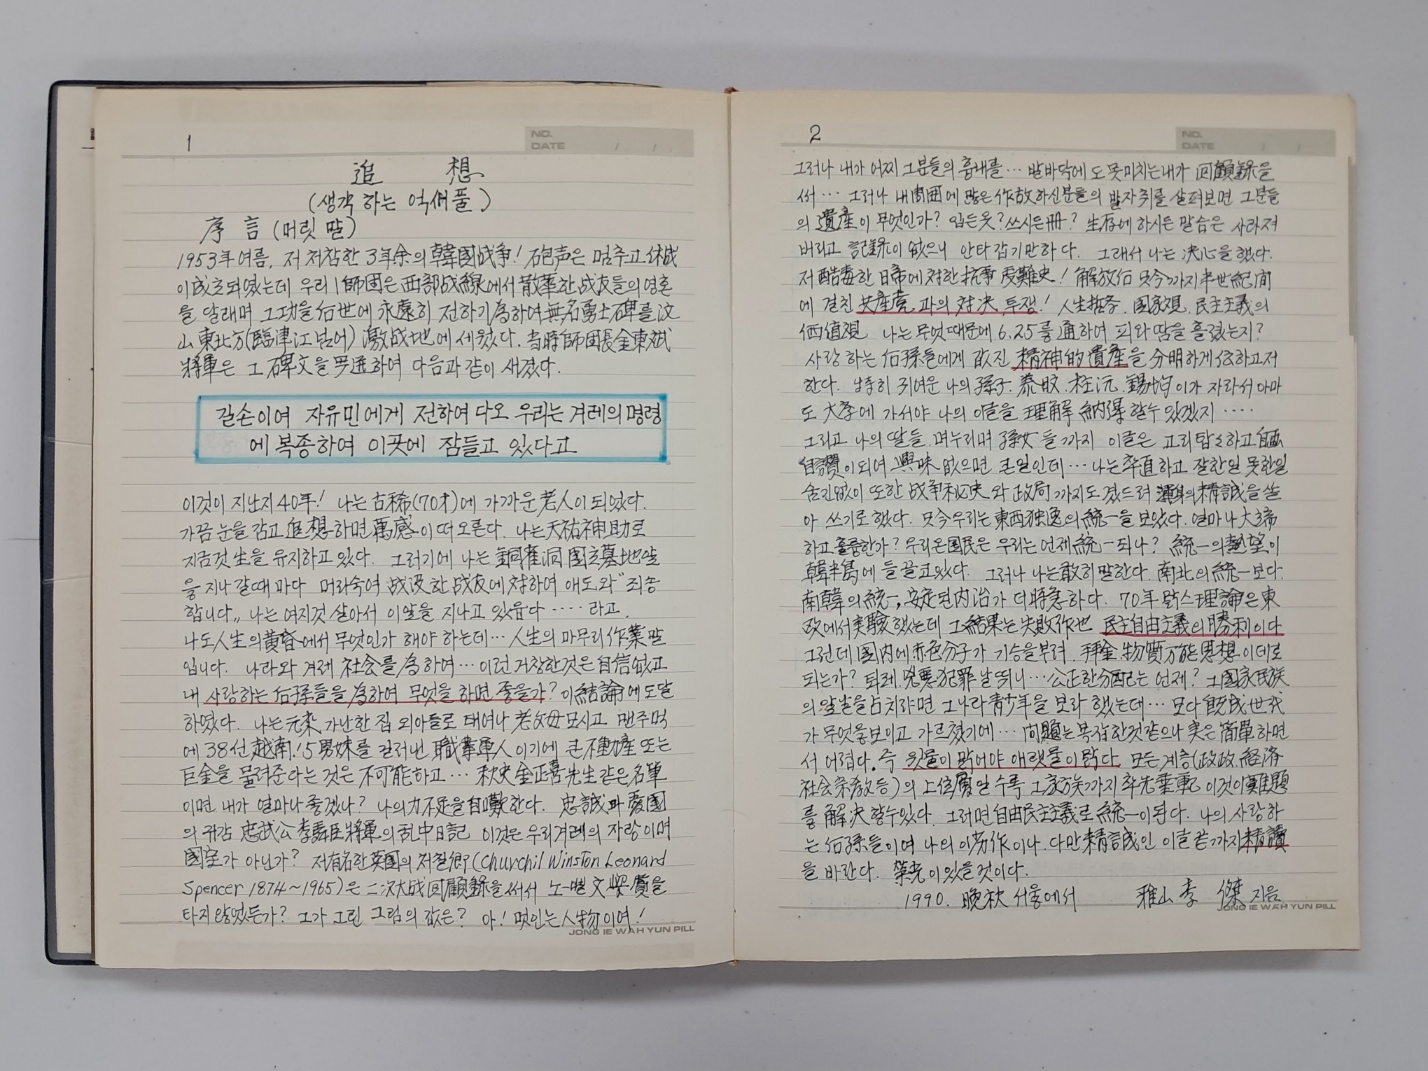 1
NO.
DATE / /
追 想
(생각 하는 억새풀)
序 言 (머릿 말)
1953年여름, 저 처참한 3年余의 韓國战争! 砲声은 멈추고 休战
이 成立되였는데 우리 1師団은 西部战線에서 散華한 战友들의 영혼
을 달래며 그 功을 后世에 永遠히 전하기 爲하여 無名勇士碑를 汶
山東北方(臨津江 넘어) 激战地에 세웠다. 当時 師団長 金東斌
將軍은 그 碑文을 다음과 같이 새겼다.
길손이여 자유민에게 전하여 다오 우리는 겨레의 명령
에 복종하여 이곳에 잠들고 있다고
이것이 지난지 40年! 나는 古稀(70才)에 가까운 老人이 되였다.
가끔 눈을 감고 追想하면 萬感이 떠오른다. 나는 天祐神助로
지금것 生을 유지하고 있다. 그러기에 나는 銅雀洞 國立墓地앞
을 지나갈때 마다 머리숙여 战没한 战友에 対하여 애도와 "죄송
합니다," 나는 여지것 살아서 이앞을 지나고 있읍다···· 라고.
나도 人生의 黄昏에서 무엇인가 해야 하는데··· 人生의 마무리 作業 말
입니다. 나라와 겨레 社会를 爲하여··· 이런 거창한것은 自信없고
내 사랑하는 后孫들을 爲하여 무엇을 하면 좋을가? 이 結論에 도달
하였다. 나는 元来 가난한 집 외아들로 태여나 老父母 모시고 맨주먹
에 38선 越南! 5男妹를 길러낸 職業軍人이기에 큰 不動産 또는
巨金을 물려준다는 것은 不可能하고··· 秋史 金正喜先生같은 名筆
이면 내가 얼마나 좋겠나? 나의 力不足을 自嘆한다. 忠誠과 愛國
의 귀감 忠武公 李舜臣將軍의 乱中日記 이것은 우리겨레의 자랑이며
國宝가 아닌가? 저有名한 英国의 저칠卿(Churchil Winston Leonard
Spencer 1874~1965)은 二次大战 回顧錄을 써서 노-벨 文學賞을
타지 않었든가? 그가 그린 그림의 값은? 아! 멋있는 人物이여!
JONG IE WAH YUN PILL
2
NO.
DATE / /
그러나 내가 어찌 그분들의 흉내를··· 발바닥에도 못미치는 내가 回顧錄을
써··· 그러나 내周囲에 많은 作故하신분들의 발자취를 살펴보면 그분들
의 遺産이 무엇인가? 입든옷? 쓰시든冊? 生存에 하시든 말씀은 사라져
버리고 記録이 없으니 안타깝기만 하다. 그래서 나는 決心을 했다.
저 酷毒한 日帝에 対한 抗争 受難史! 解放后 只今까지 半世紀間
에 걸친 共産党과의 対決, 투쟁! 人生哲学, 国家观, 民主主義의
価値观 나는 무엇때문에 6.25를 通하여 피와 땀을 흘렸는지?
사랑하는 后孫들에게 값진 精神的遺産을 分明하게 伝하고저
한다. 特히 귀여운 나의 孫子 이가 자라서 아마
도 大学에 가서야 나의 이글을 理解 納得할수 있겠지····
그리고 나의 딸들, 며누리며 孫女들까지 이글은 고리탑소하고 自画
自讃이 되여 興味없으면 큰일인데··· 나는 率直하고 잘한일 못한일
숨김없이 또한 战争秘史와 政局까지도 겼드려 渾身의 精誠을 쏟
아 쓰기로 했다. 只今우리는 東西独逸의 統一을 보았다. 얼마나 大
하고 훌륭한가? 우리은 国民은 우리는 언제 統一되나? 統一의 熱望이
韓半島에 들끌고있다. 그러나 나는 敢히 말한다. 南北의 統一보다
南韓의 統一, 安定된 内治가 더 時急하다. 70年 맑스理論은 東
欧에서 実験했는데 그 結果는 失敗作也 民主自由主義의 勝利이다
그런데 国内에 赤色分子가 기승을부려, 拜金, 物質万能思想 이대로
되는가? 퇴폐, 兇悪犯罪 날뛰니··· 公正한 分配는 언제? 그 国家民族
의 앞날을 占치랴면 그나라 青少年을 보라 했는데··· 모다 旣成世代
가 무엇을 보이고 가르쳤기에··· 问題는 복잡한것 같으나 実은 简单하면
서 어렵다. 즉 윗물이 맑어야 아랫물이 맑다. 모든 계층(政政, 経済
社会宗教等)의 上位層 일수록 그 家族까지 率先垂範 이것이 難題
를 解決할수있다. 그러면 自由民主主義로 統一이 된다. 나의 사랑하
는 后孫들이여 나의 作이나, 다만 精誠인 이글 끝까지 精讀
을 바란다. 榮光이 있을것이다.
1990. 晚秋 서울에서 雅山 李 傑 지음
JONG IE WAH YUN PILL